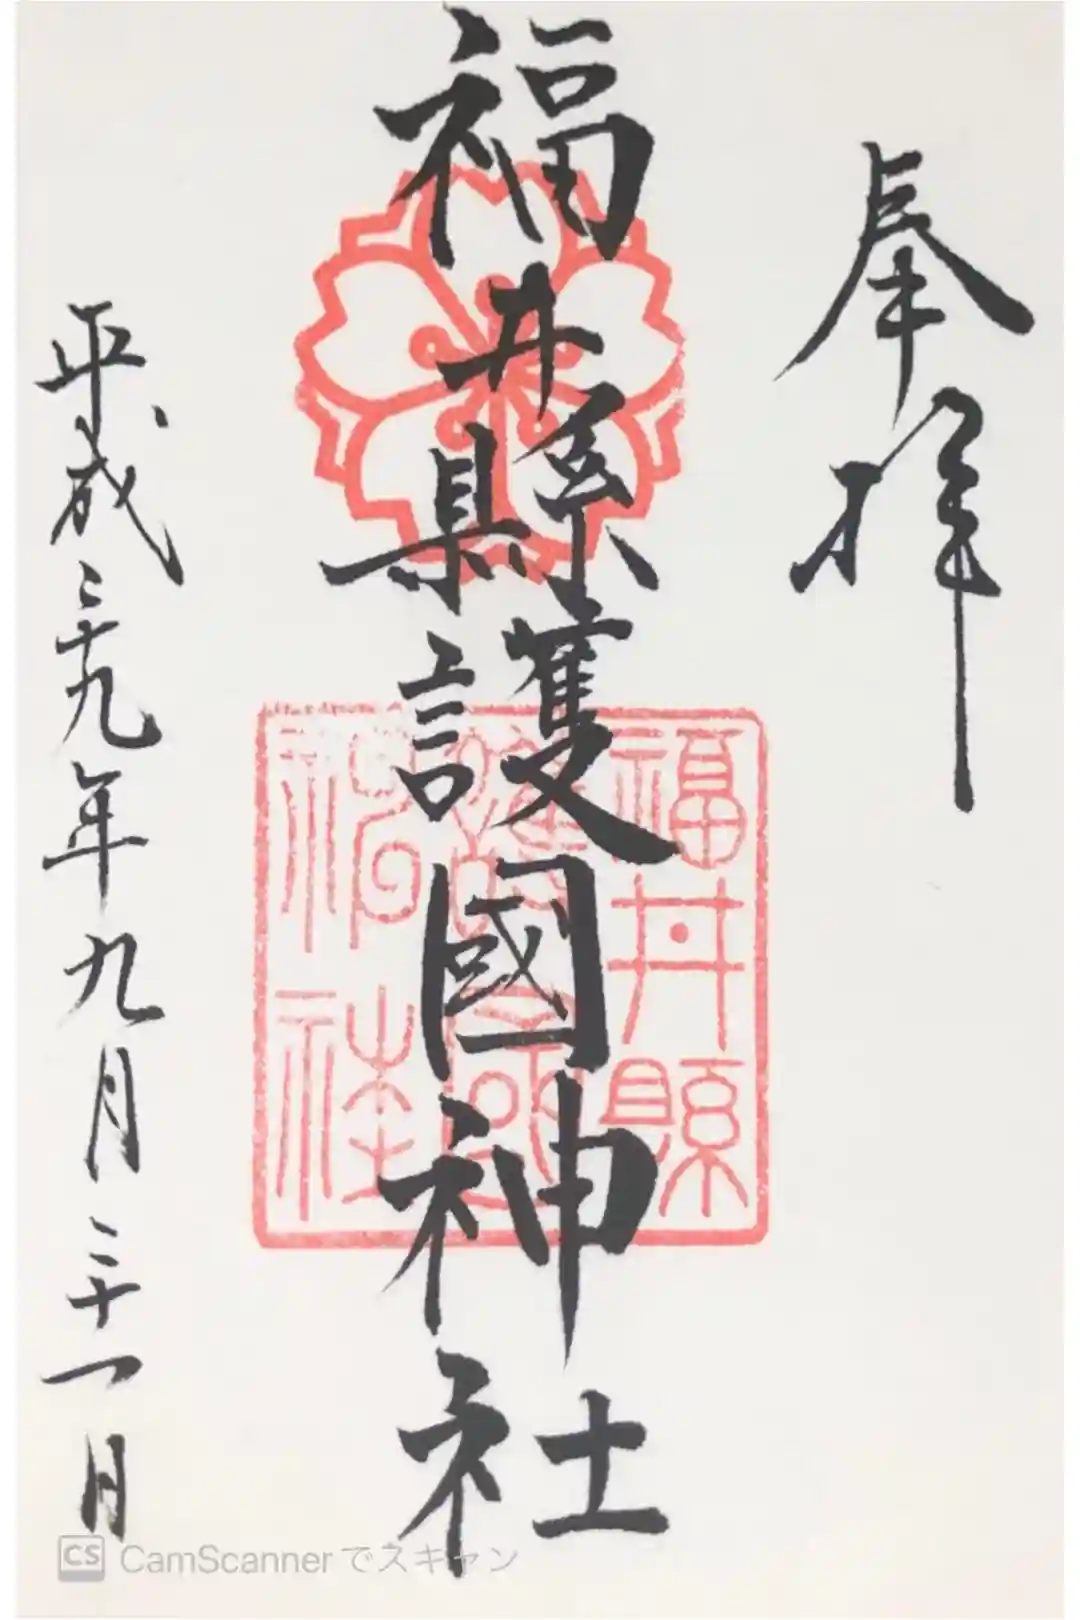 奉拝
福井縣護國神社
福井縣
護國
神社
平成二十九年九月二十一日
CS CamScanner でスキャン